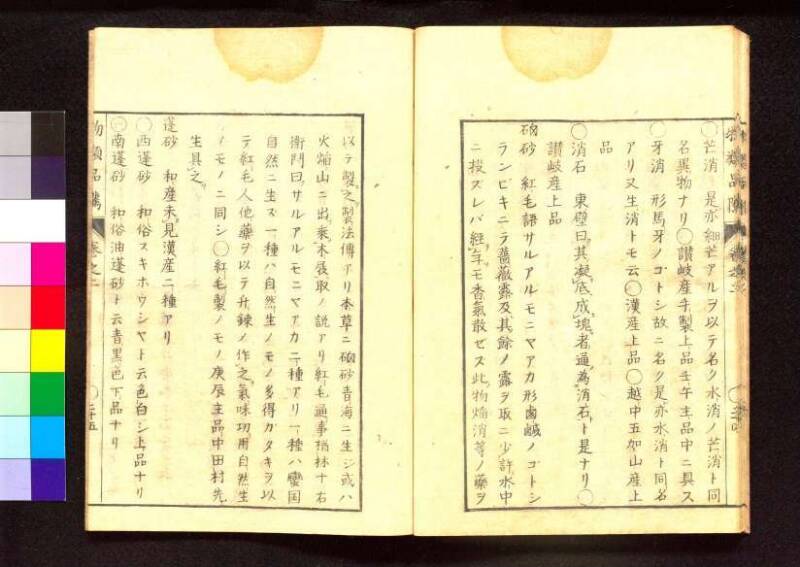 〇芒消 是亦細芒アルヲ以テ名ク水消ノ芒消ト同
名異物ナリ〇讃岐産手製上品壬午主品中ニ具ス
〇牙消 形馬牙ノゴトシ故ニ名ク是亦水消ト同名
アリ又生消トモ云〇漢産上品〇越中五加山産上
品
〇消石 東壁曰其凝底成塊者通為消石ト是ナリ〇
讃岐産上品
硇砂 紅毛語サルアルモニヤアカ形鹵鹹ノゴトシ
ランビキニテ薔薇露及其餘ノ露ヲ取ニ少許水中
ニ投スレバ経年モ香氣散ゼス此物焔消等ノ藥ヲ
以テ製之製法傳アリ本草ニ硇砂青海ニ生ジ或ハ
火焔山ニ出乘木屐取ノ説アリ紅毛通事楢林十右
衛門曰サルアルモニヤアカニ種アリ一種ハ蠻国
自然ニ生ズ一種ハ自然生ノモノ多得カタキヲ以
テ紅毛人他藥ヲ以テ升錬ノ作之氣味功用自然生
ノモノニ同シ〇紅毛製ノモノ庚辰主品中田村先
生具之
蓬砂 和産未見漢産二種アリ
〇西蓬砂 和俗スキホウシヤト云色白シ上品ナリ
〇南蓬砂 和俗油蓬砂ト云青黒色下品ナリ
物類品隲 巻之二 〇二十五